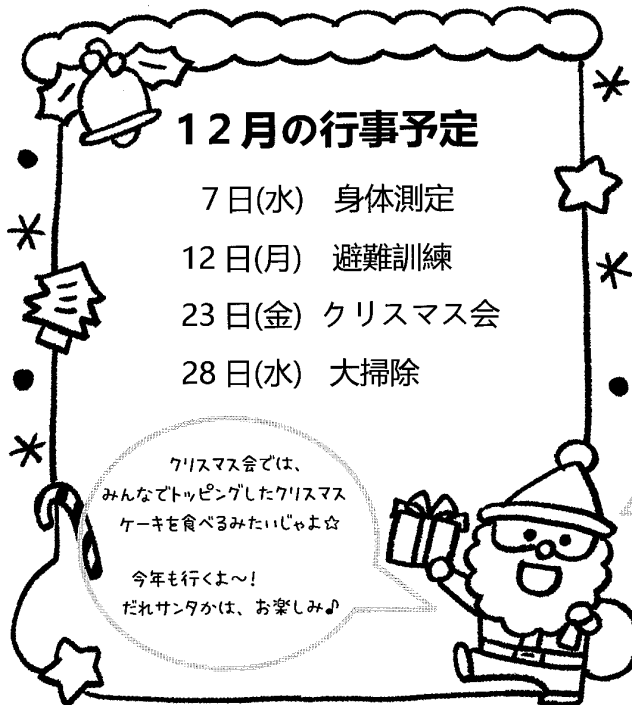 12月の行事予定
7日(水) 身体測定
12日(月) 避難訓練
23日(金) クリスマス会
28日(水) 大掃除
クリスマス会では、
みんなでトッピングしたクリスマス
ケーキを食べるみたいじゃよ☆
今年も行くよ～！
だれサンタかは、お楽しみ♪